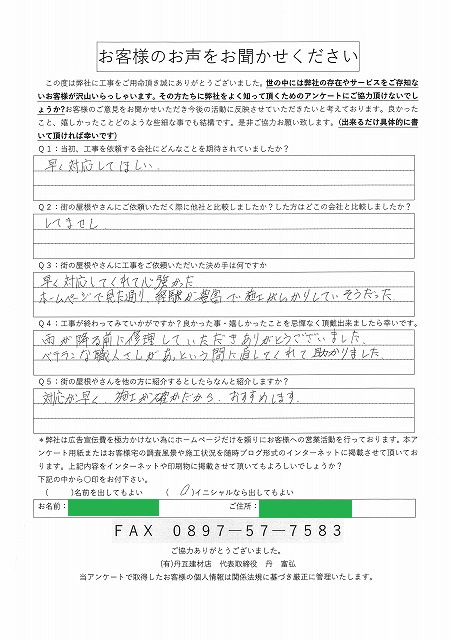 お客様のお声をお聞かせください
この度は弊社に工事をご用命頂き誠にありがとうございました。世の中には弊社の存在やサービスをご存知な
いお客様が沢山いらっしゃいます。その方たちに弊社をよく知って頂くためのアンケートにご協力頂けないでし
ょうか?お客様のご意見をお聞かせいただき今後の活動に反映させていただきたいと考えております。良かった
こと、嬉しかったことどのような些細な事でも結構です。是非ご協力お願い致します。(出来るだけ具体的に書
いて頂ければ幸いです)
Q1:当初、工事を依頼する会社にどんなことを期待されていましたか?
早く対応してほしい。
Q2:街の屋根やさんにご依頼いただく際に他社と比較しましたか?した方はどこの会社と比較しましたか?
してません
Q3:街の屋根やさんに工事をご依頼いただいた決め手は何ですか
早く対応してくれて心強かった
ホームページで見た通り、経験が豊富で施工がしっかりしていそうだった。
Q4:工事が終わってみていかがですか?良かった事・嬉しかったことを忌憚なく頂戴出来ましたら幸いです。
雨が降る前に修理していただきありがとうございました。
ベテランな職人さんがあっという間に直してくれて助かりました。
Q5:街の屋根やさんを他の方に紹介するとしたらなんと紹介しますか?
対応が早く、施工が確かだから、おすすめします。
*弊社は広告宣伝費を極力かけない為にホームページだけを頼りにお客様への営業活動を行っております。本ア
ンケート用紙またはお客様宅の調査風景や施工状況を随時ブログ形式のインターネットに掲載させて頂いてお
ります。上記内容をインターネットや印刷物に掲載させて頂いてもよろしいでしょうか?
下記の中から〇印をお付下さい。
( )名前を出してもよい ( 〇 )イニシャルなら出してもよい
お名前: ご住所:
FAX 0897-57-7583
ご協力ありがとうございました。
(有)丹瓦建材店 代表取締役 丹 富弘
当アンケートで取得したお客様の個人情報は関係法規に基づき厳正に管理いたします。